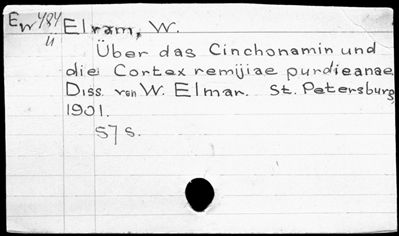 Ew 484
Elram, W.
Über das Cinchonamin und
die Cortex remijiae purdieanae
Diss. von W. Elman. St. Petersburg,
1901.
57 s.